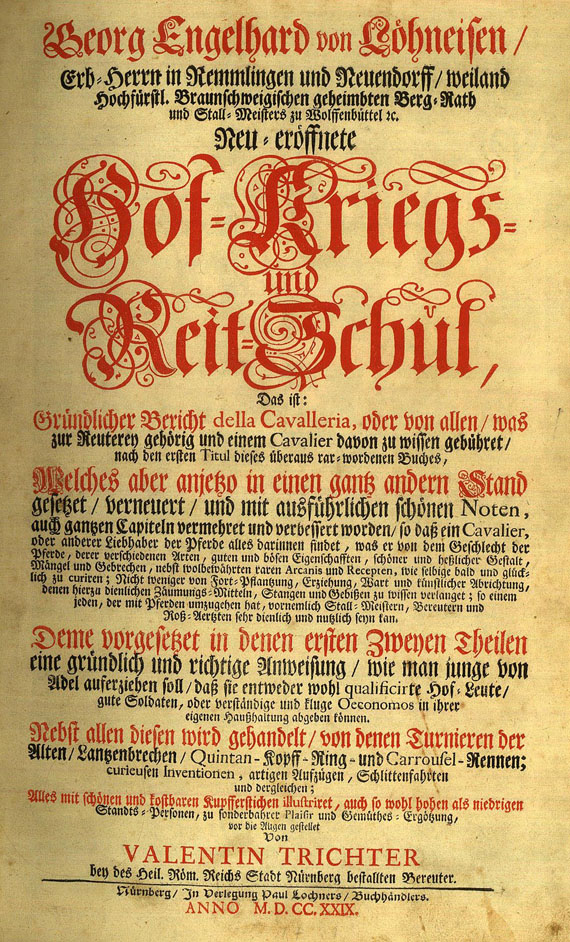 Georg Engelhard von Löhneisen /
Erb-Herrn in Remmlingen und Neuendorff / weiland
Hochfürstl. Braunschweigischen geheimbten Berg-Rath
und Stall-Meisters zu Wolffenbüttel ꝛc.
Neu-eröffnete
Hof-Kriegs-
und
Reit-Schul,
Das ist:
Gründlicher Bericht della Cavalleria, oder von allen / was
zur Reuterey gehörig und einem Cavalier davon zu wissen gebühret /
nach den ersten Titul dieses überaus rar-wordenen Buches,
Welches aber anjetzo in einen gantz andern Stand
gesetzet / verneuert / und mit ausführlichen schönen Noten,
auch gantzen Capiteln vermehret und verbessert worden / so daß ein Cavalier,
oder anderer Liebhaber der Pferde alles darinnen findet, was er von dem Geschlecht der
Pferde, derer verschiedenen Arten, guten und bösen Eigenschafften, schöner und heßlicher Gestalt,
Mängel und Gebrechen, nebst wolbewährten raren Arcanis und Recepten, wie selbige bald und glück-
lich zu curiren; Nicht weniger von Fort-Pflantzung, Erziehung, Wart und künstlicher Abrichtung,
denen hierzu dienlichen Zäumungs-Mitteln, Stangen und Gebißen zu wissen verlanget; so einem
jeden, der mit Pferden umzugehen hat, vornemlich Stall-Meistern, Bereutern und
Roß-Aertzten sehr dienlich und nutzlich seyn kan.
Deme vorgesetzet in denen ersten Zweyen Theilen
eine gründlich und richtige Anweisung / wie man junge von
Adel auferziehen soll / daß sie entweder wohl qualificirte Hof-Leute /
gute Soldaten, oder verständige und kluge Oeconomos in ihrer
eigenen Haußhaltung abgeben können.
Nebst allen diesen wird gehandelt / von denen Turnieren der
Alten / Lantzenbrechen / Quintan-Kopff-Ring-und Carrousel-Rennen;
curieusen Inventionen, artigen Aufzügen, Schlittenfahrten
und dergleichen;
Alles mit schönen und kostbaren Kupfferstichen illustriret, auch so wohl hohen als niedrigen
Standts-Personen, zu sonderbahrer Plaisir und Gemüthes-Ergötzung,
vor die Augen gestellet
Von
VALENTIN TRICHTER
bey des Heil. Röm. Reichs Stadt Nürnberg bestallten Bereuter.
Nürnberg / In Verlegung Paul Lochners / Buchhändlers.
ANNO M. D. CC. XXIX.